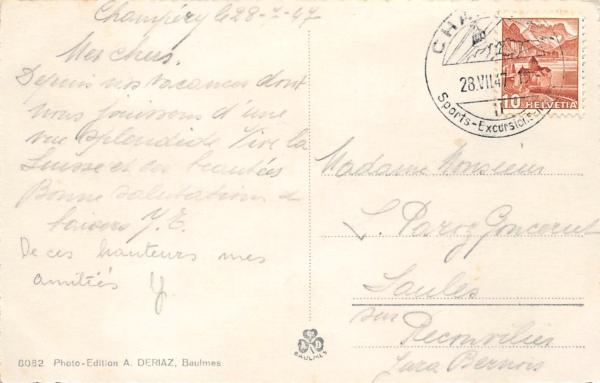 Champéry le 28-7-47
Mes chers.
Depuis nos vacances dont
nous jouissons d'une
vue splendide Vive la
Suisse et ces beautés
Bonne salutations &
baisers J. E.
De ces hauteurs mes
amitiés Y
8082 Photo-Edition A. DERIAZ, Baulmes
BAULMES
CHA
28.VII.47
Sports-Excursions
10 HELVETIA
Madame Monsieur
Paroz Goncerut
Saules
sur
Reconvilier
Jura Bernois